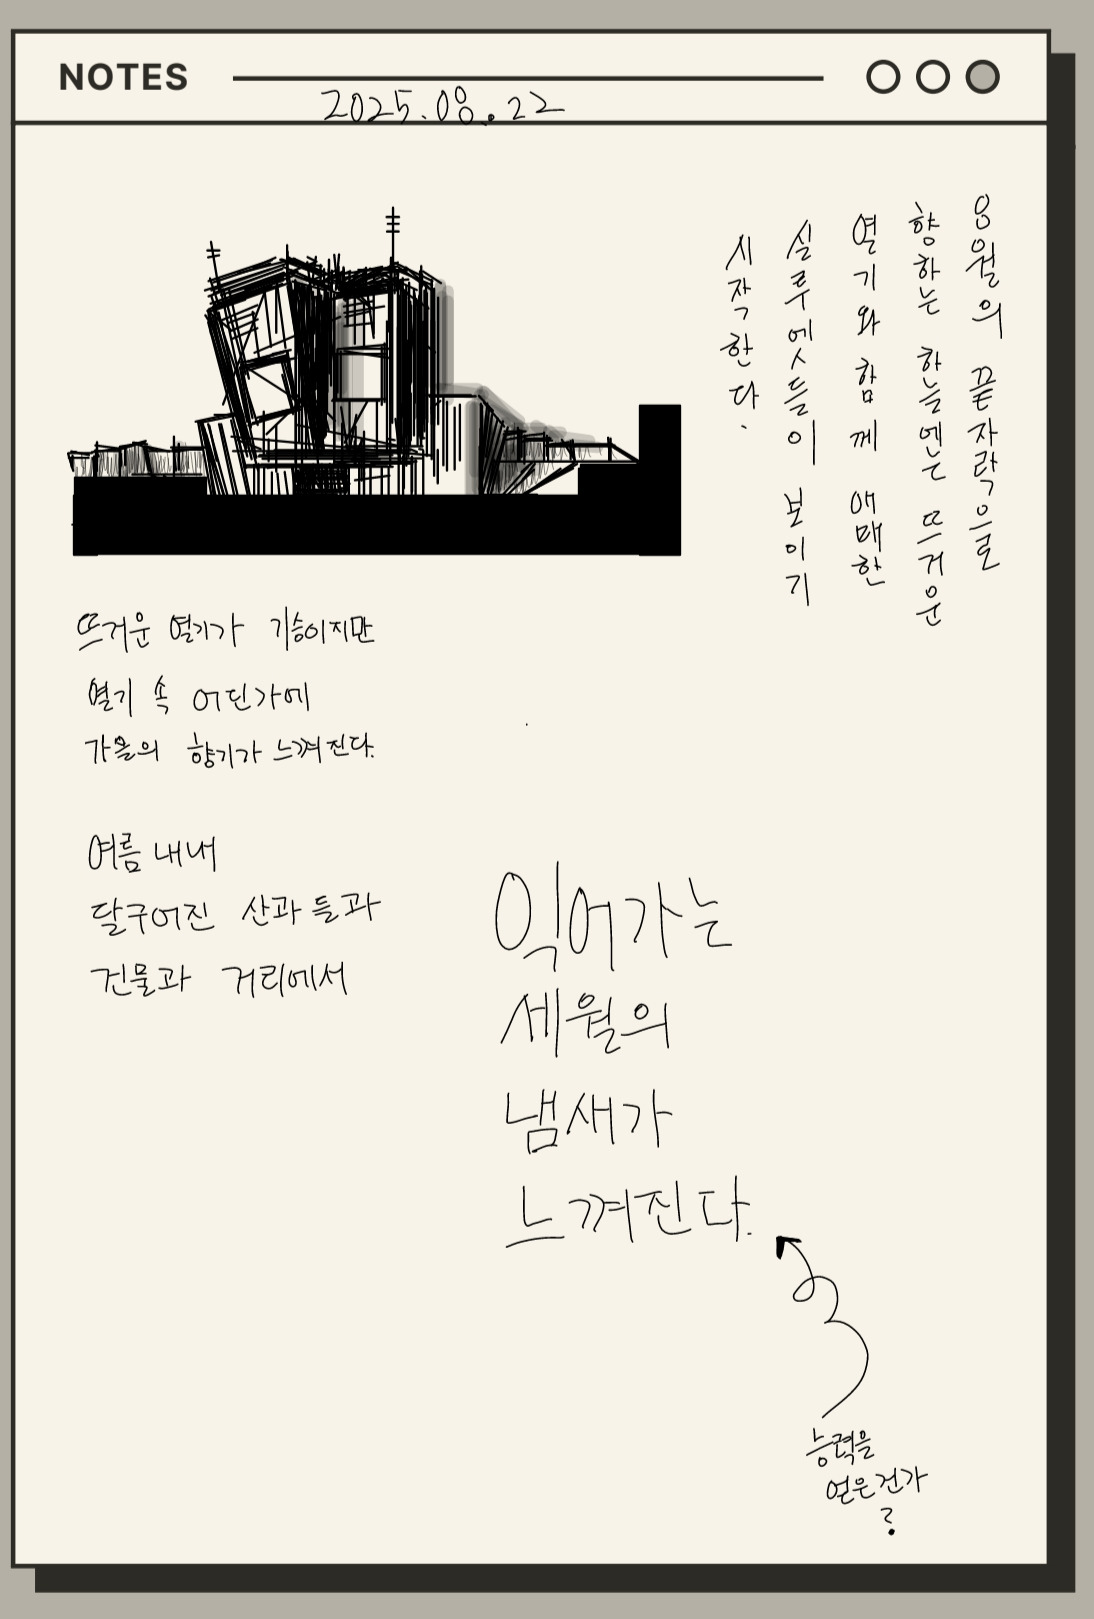 NOTES
2025.08.22
8월의 끝자락으로
향하는 하늘엔 뜨거운
열기와 함께 애매한
실루엣들이 보이기
시작한다.
뜨거운 열기가 기승이지만
열기 속 어딘가에
가을의 향기가 느껴진다.
여름 내내
달구어진 산과 들과
건물과 거리에서
익어가는
세월의
냄새가
느껴진다.
능력을
얻은건가
?